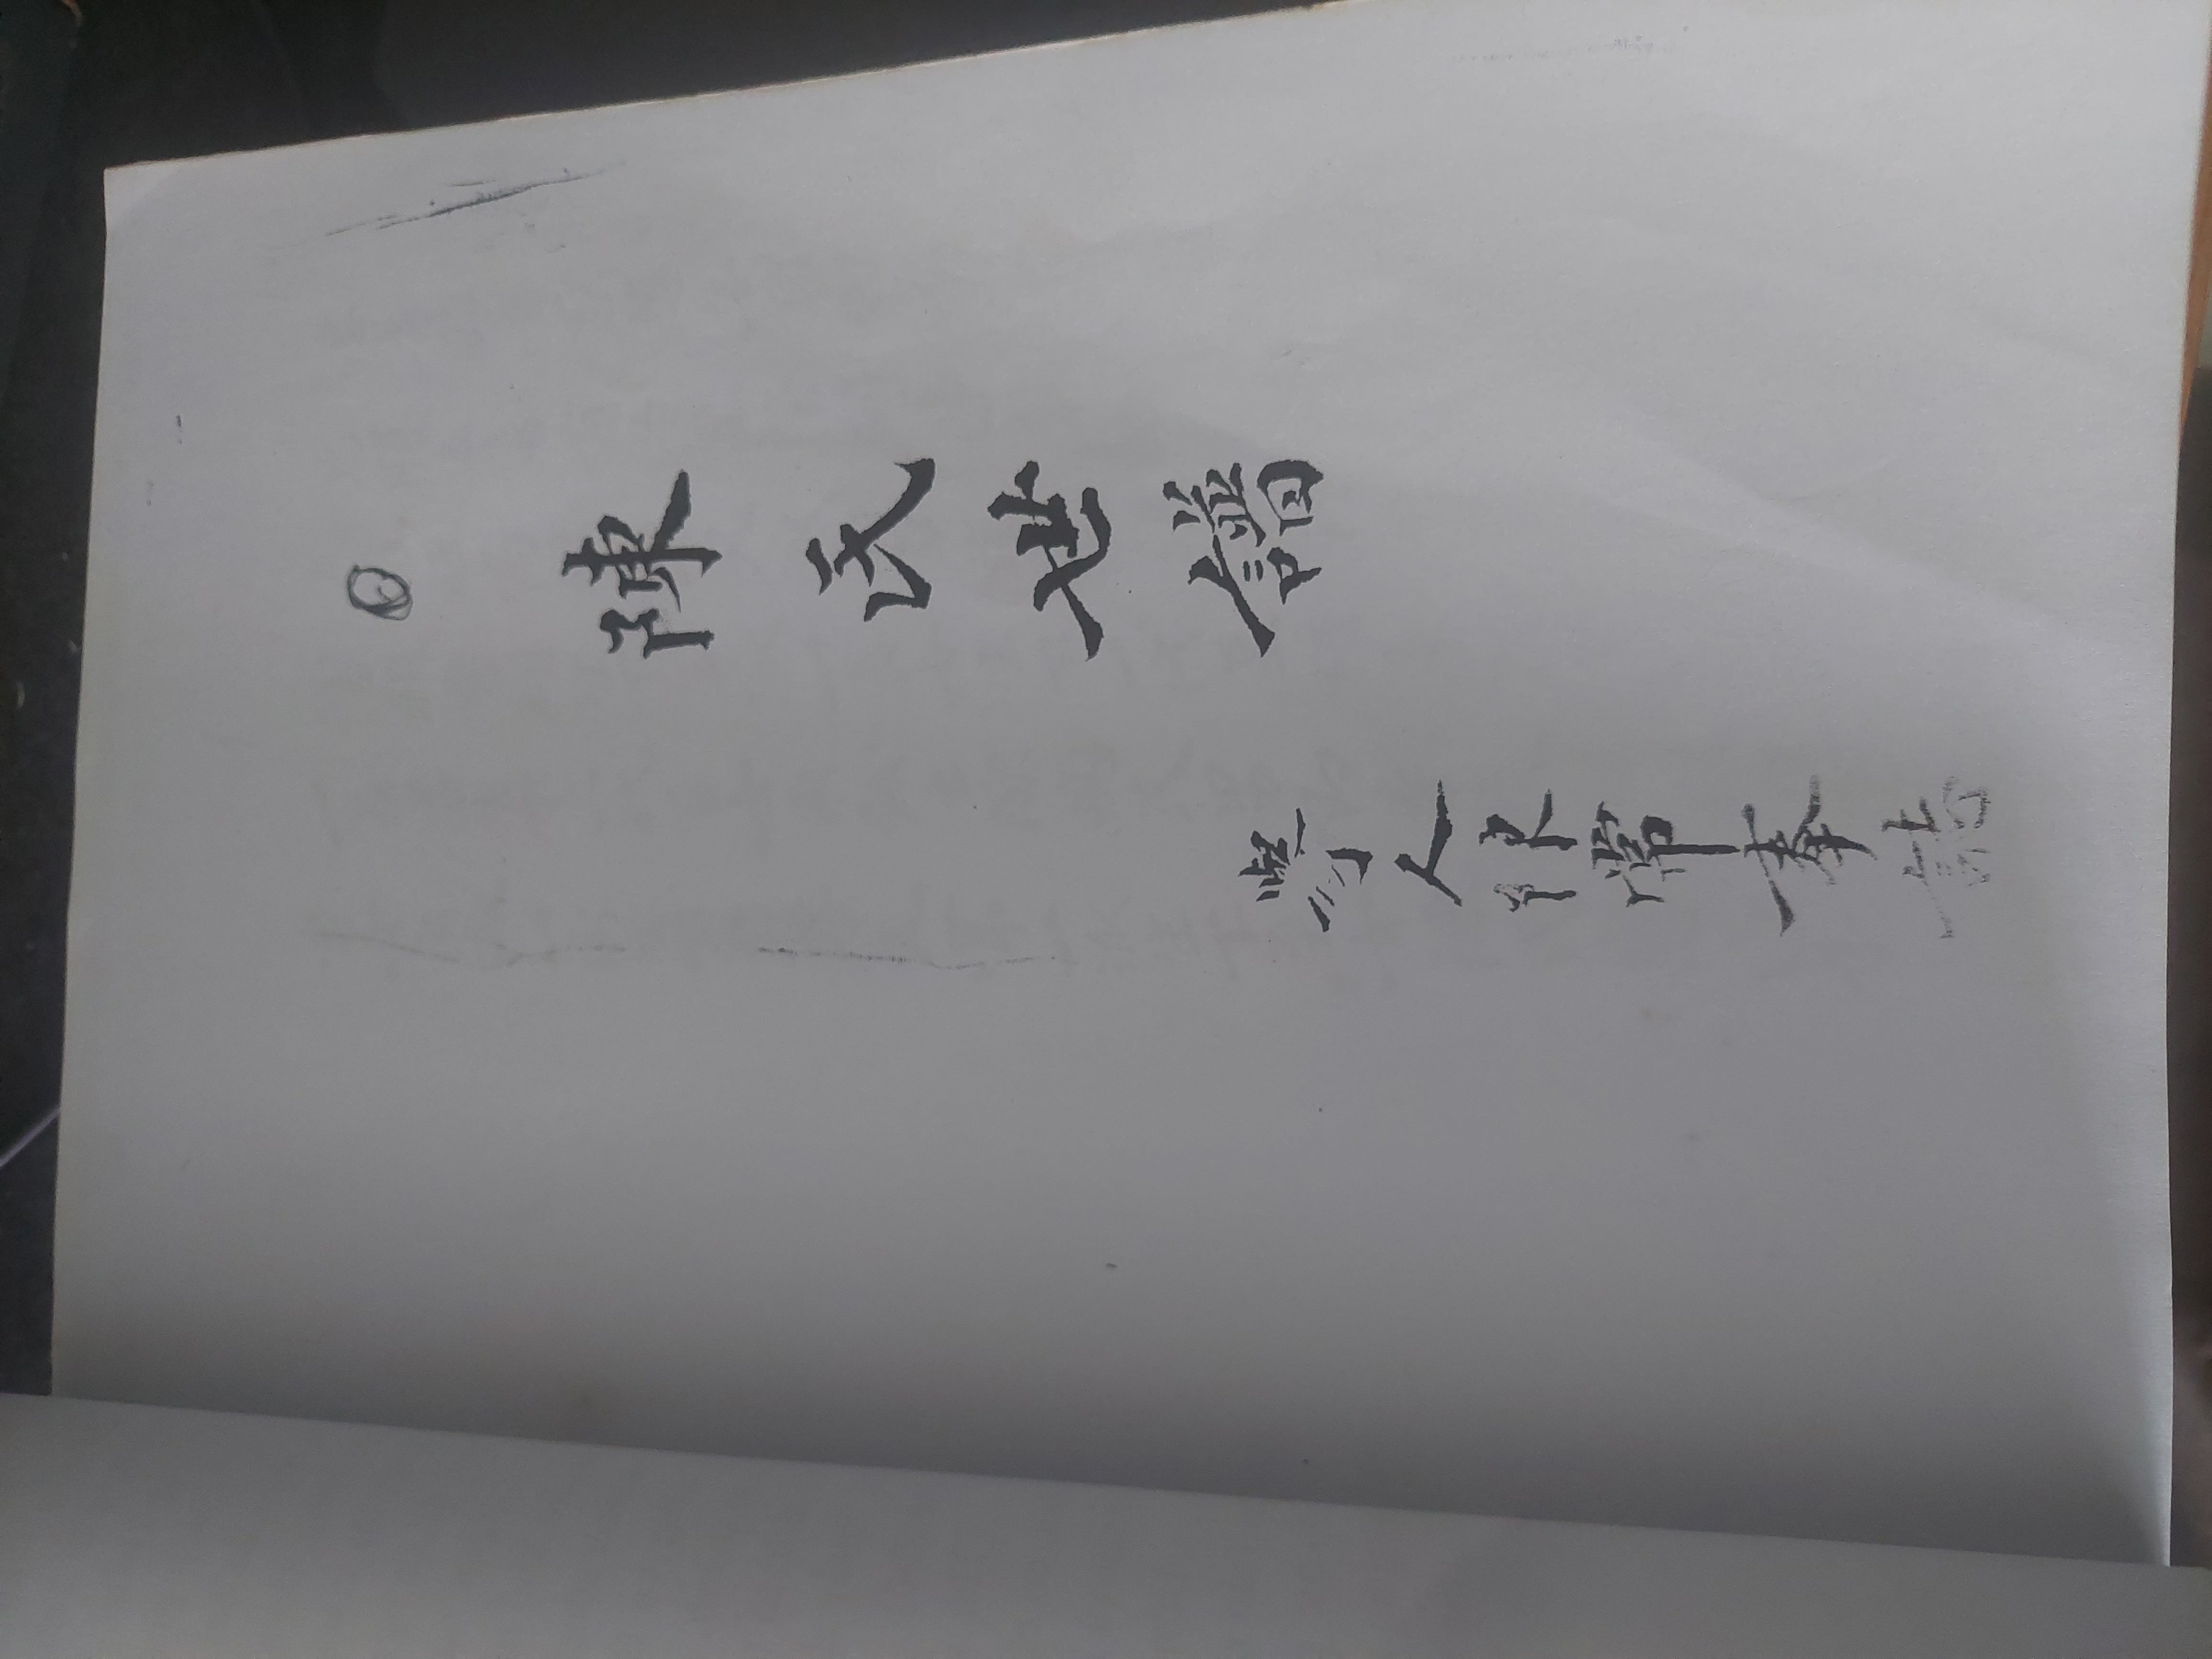 陳氏世譜
舉人陳常奉誌